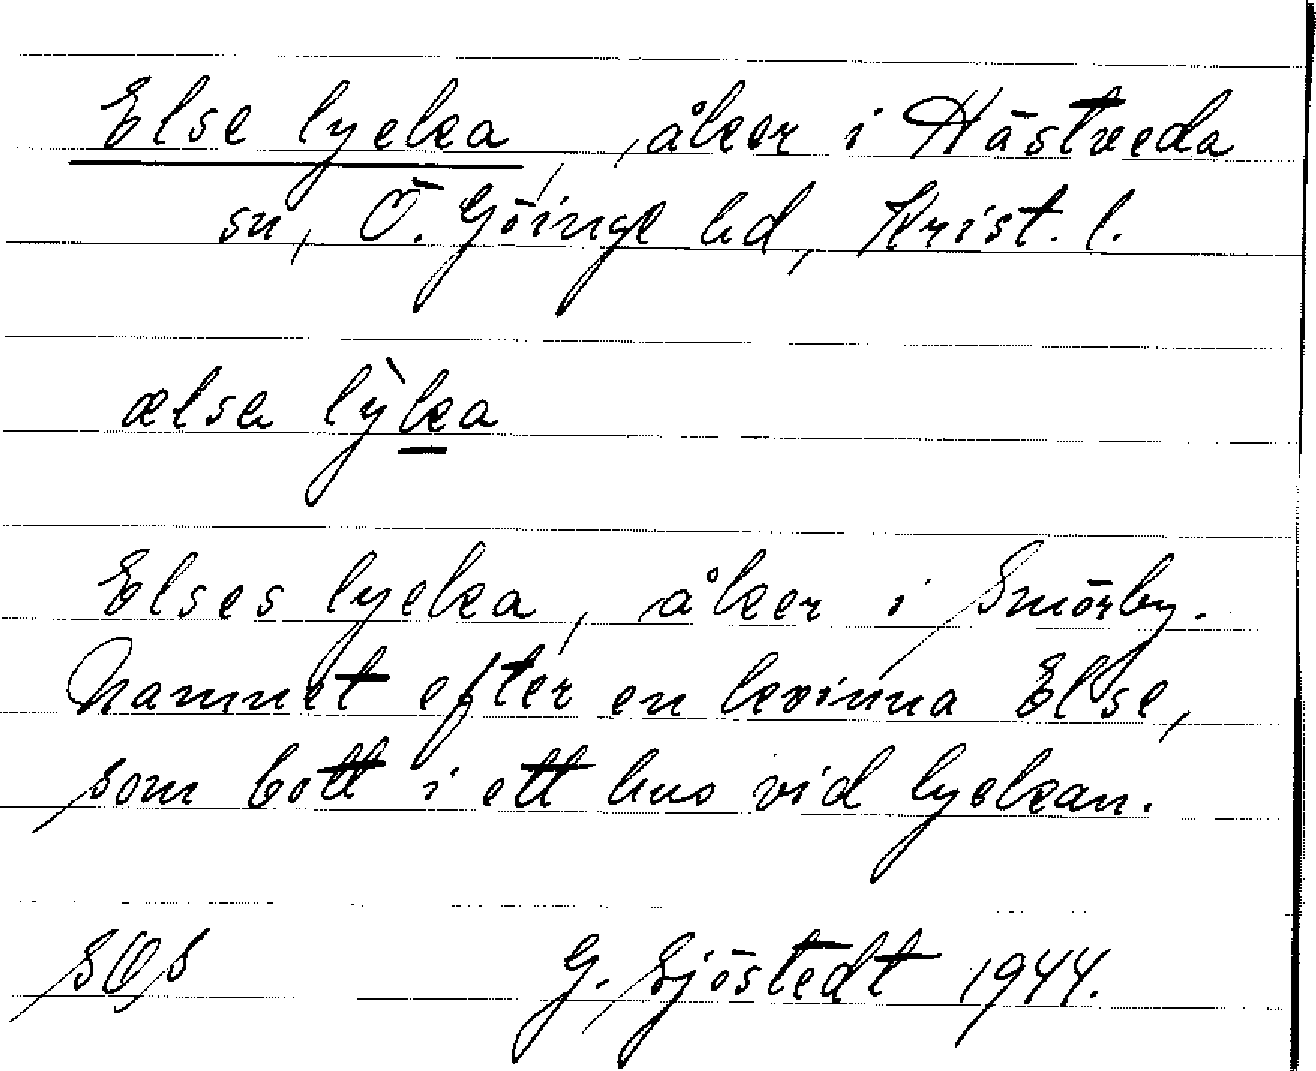 Else lycka, åker i Hästveda
sn, Ö. Göinge hd, Krist. l.
ælsa lỳka
Elses lycka, åker i Smörby.
Namnet efter en kvinna Else,
som bott i ett hus vid lyckan.
SOS G. Sjöstedt 1944.